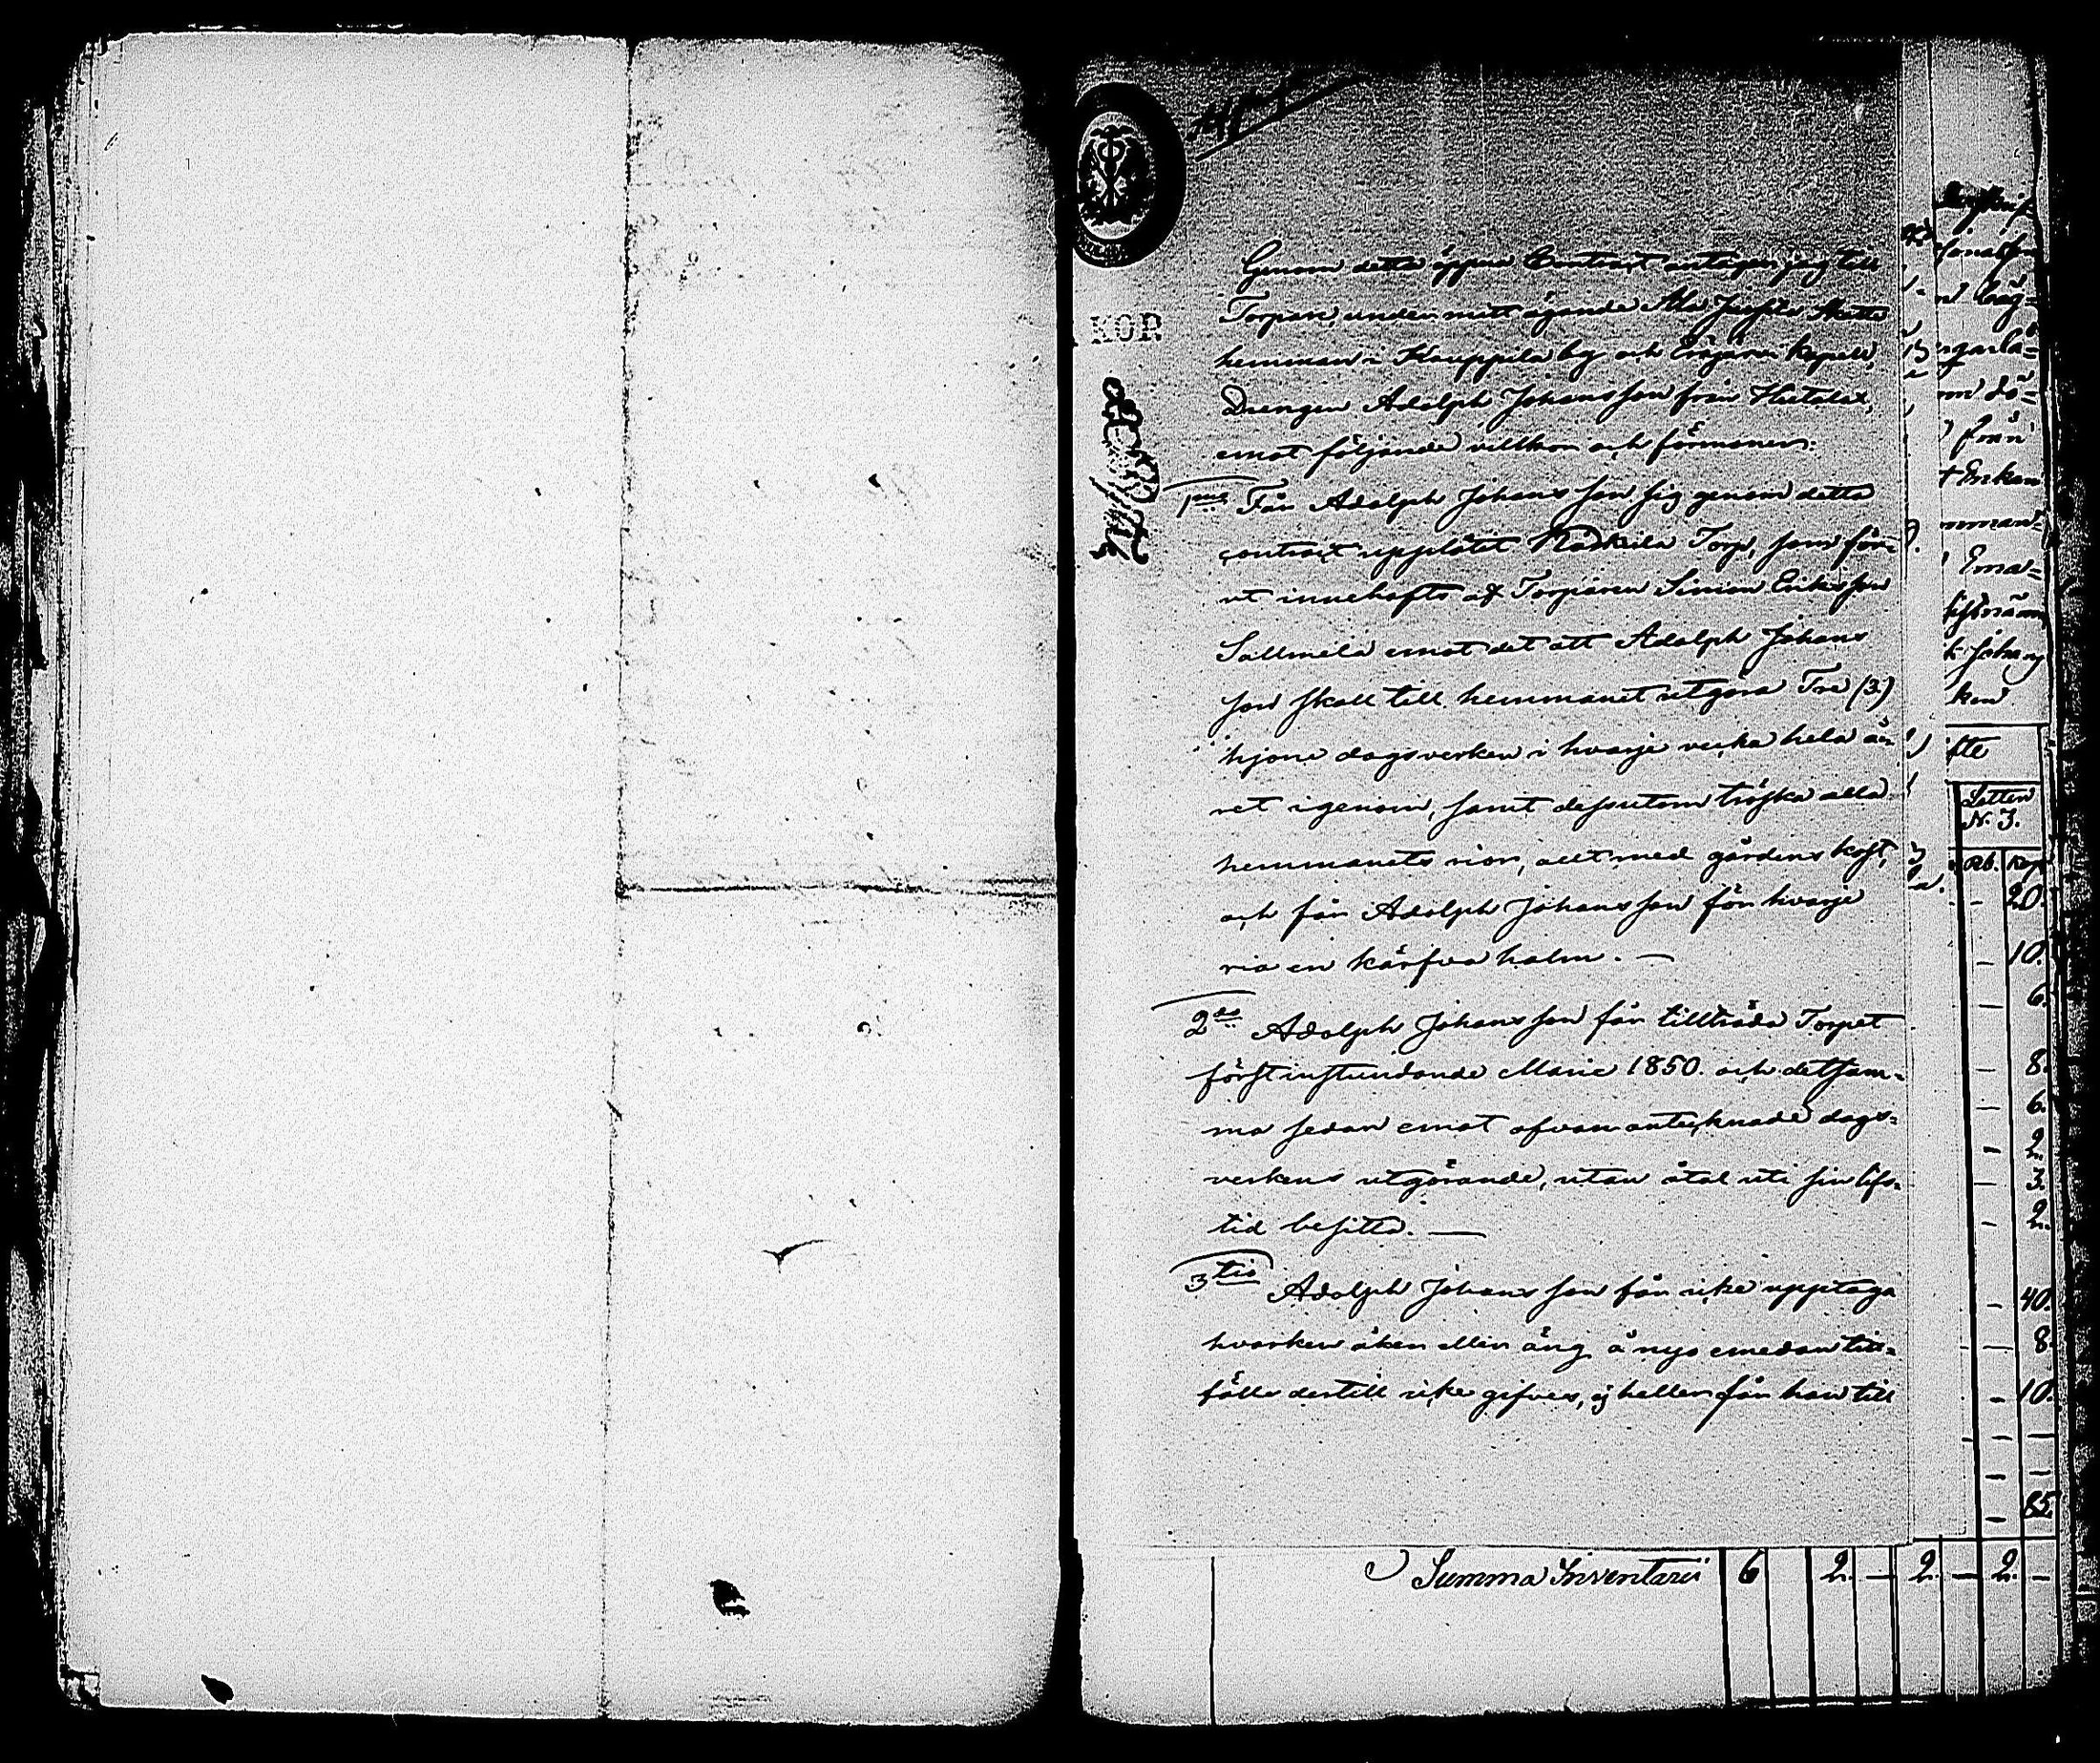 KOP.
Genom detta öppna Contract antager jag till
Torpare, under mitt ägande Ala Jussila Skatte
hemman i Kauppila by och Eräjärvi kapell,
Drengen Adolph Johansson från
emot följande villkor och förmoner:
1mo Får Adolph Johansson sig genom detta
contract upplåtit Torp, som för-
ut innehafts af Torparen Simon Eriksson
Sallmela emot det att Adolph Johans
son skall till hemmanet utgöra Tre (3.)
hjone dagsverken i hvarje vecka hela å-
ret igenom, samt dessutom tröska alla
hemmanets rior, allt med gårdens kost,
och får Adolph Johansson för hvarje
ria en kärfva halm. —
2do Adolph Johansson får tillträda Torpet
förstinstundande Marie 1850. och detsam-
ma sedan emot ofvanantecknade dags-
verkens utgörande, utan åtal uti sin lifs-
tid besitta. —
3tio Adolph Johansson får icke upptaga
hvarken åker eller äng å nyo emedan till-
fälle dertill icke gifves, ej heller får han till
från
Enkan
Lotten
N. 3.
Rb. Kop
— 20.
— 10.
6.
— 8.
— 6.
— 2.
— 3.
— 2.
— 40.
— 8.
— 10.
— —
— —
— 85
Summa Inventarii 6 2. — 2. — 2. —